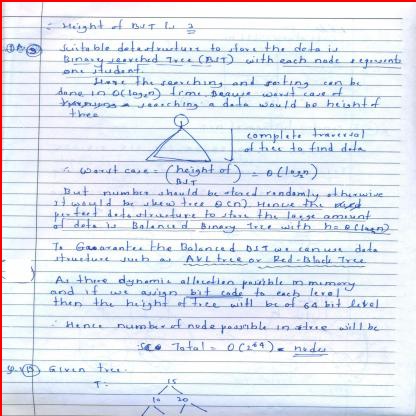 ∴ Height of BST is 3
Suitable datastructure to store the data is
Binary searched Tree (BST) with each node represents
one student.
Here the searching and sorting can be
done in O(log₂n) time. Because worst case of
searching a data would be height of
tree
complete traversal
of tree to find data
∴ worst case = (height of BST) = O(log₂n)
But number should be stored randomly otherwise
it would be skew tree O(n) Hence the
perfect data structure to store the large amount
of data is Balanced Binary Tree with h = O(log n)
To Gaurantee the Balanced BST we can use data
structure such as AVL tree or Red-Black Tree
As there dynamic allocation possible in memory
and if we assign bit code to each level
then the height of tree will be of 64 bit level
∴ Hence number of node possible in tree will be
Total = O(2⁶⁴) nodes
Given tree.
T:
15
10 20